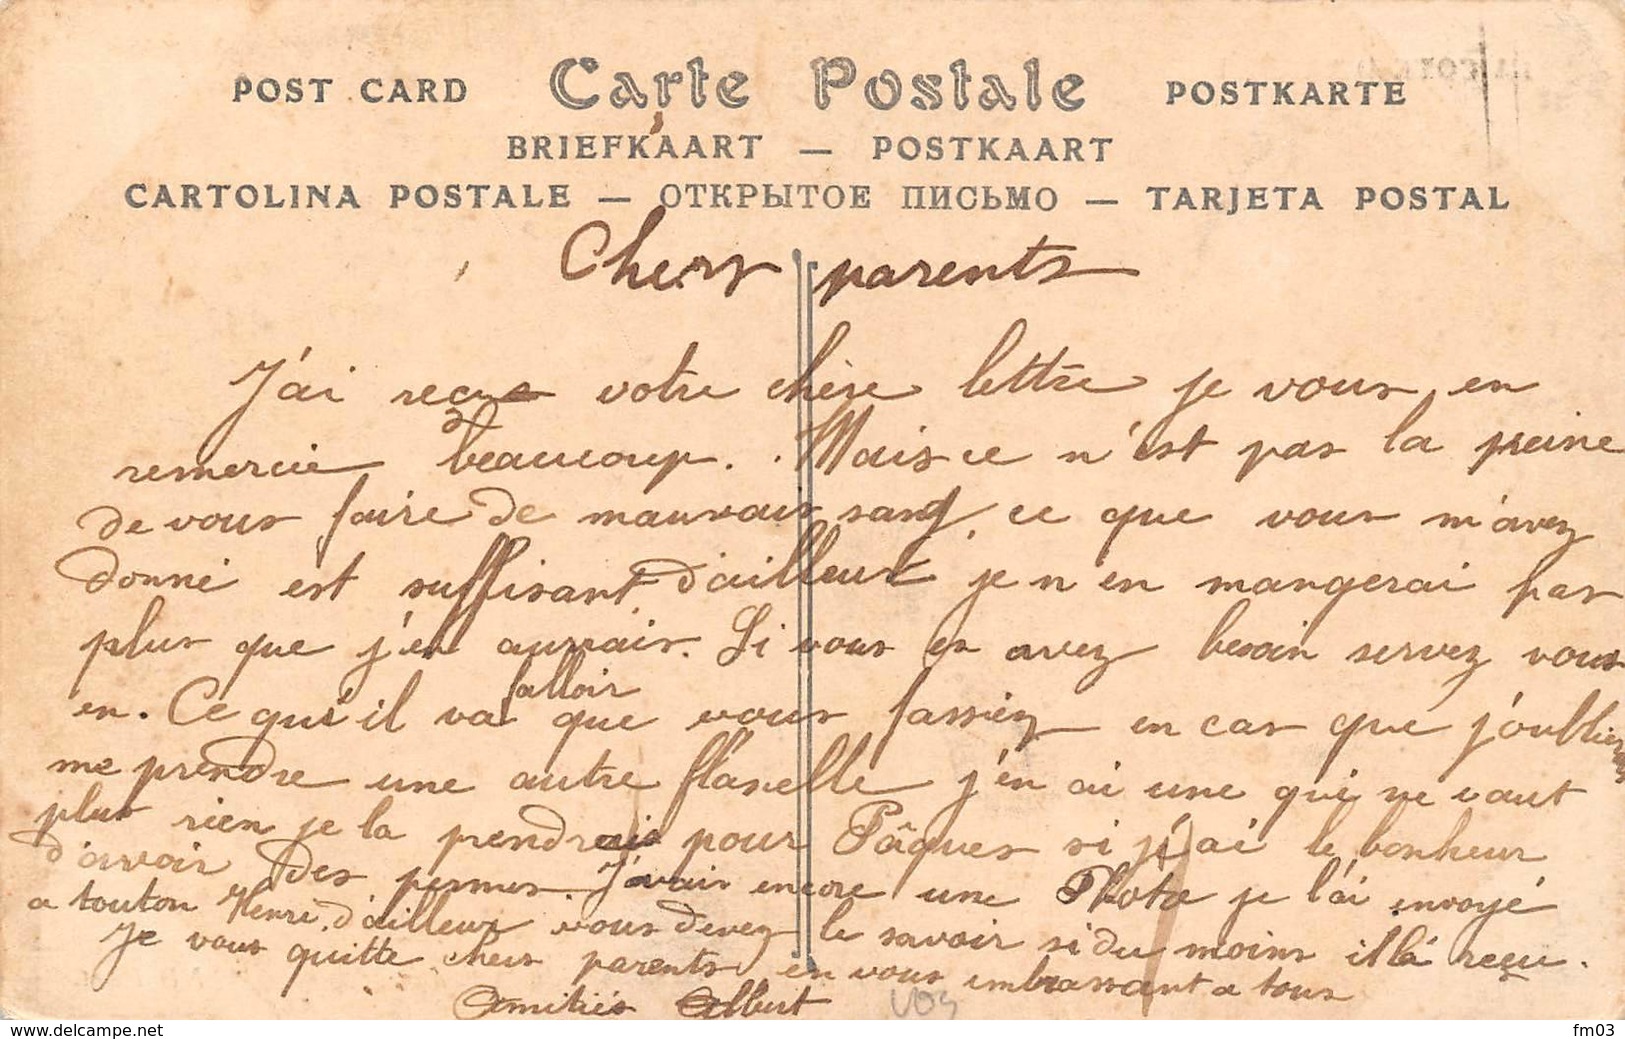 POST CARD Carte Postale POSTKARTE
BRIEFKAART — POSTKAART
CARTOLINA POSTALE — ОТКРЫТОЕ ПИСЬМО — TARJETA POSTAL
Chers parents
J'ai reçue votre chère lettre je vous en
remercie beaucoup. Mais ce n'est pas la peine
de vous faire de mauvais sang, ce que vous m'avez
donné est suffisant d'ailleurs je n'en mangerai pas
plus que j'en aurrais. Si vous en avez besoin servez vous
falloir
en. Ce qu'il va que vous fassiez en cas que j'oublierais
me prendre une autre flanelle j'en ai une qui ne vaut
plus rien je la prendrais pour Pâques si j'ai le bonheur
d'avoir des permes J'avais encore une Photo je l'ai envoyé
a tonton Henri d'ailleurs vous devez le savoir si du moins il l'a reçu.
Je vous quitte chers parents en vous embrassant a tous
Amitiés Albert
vos
www.delcampe.net
fm03